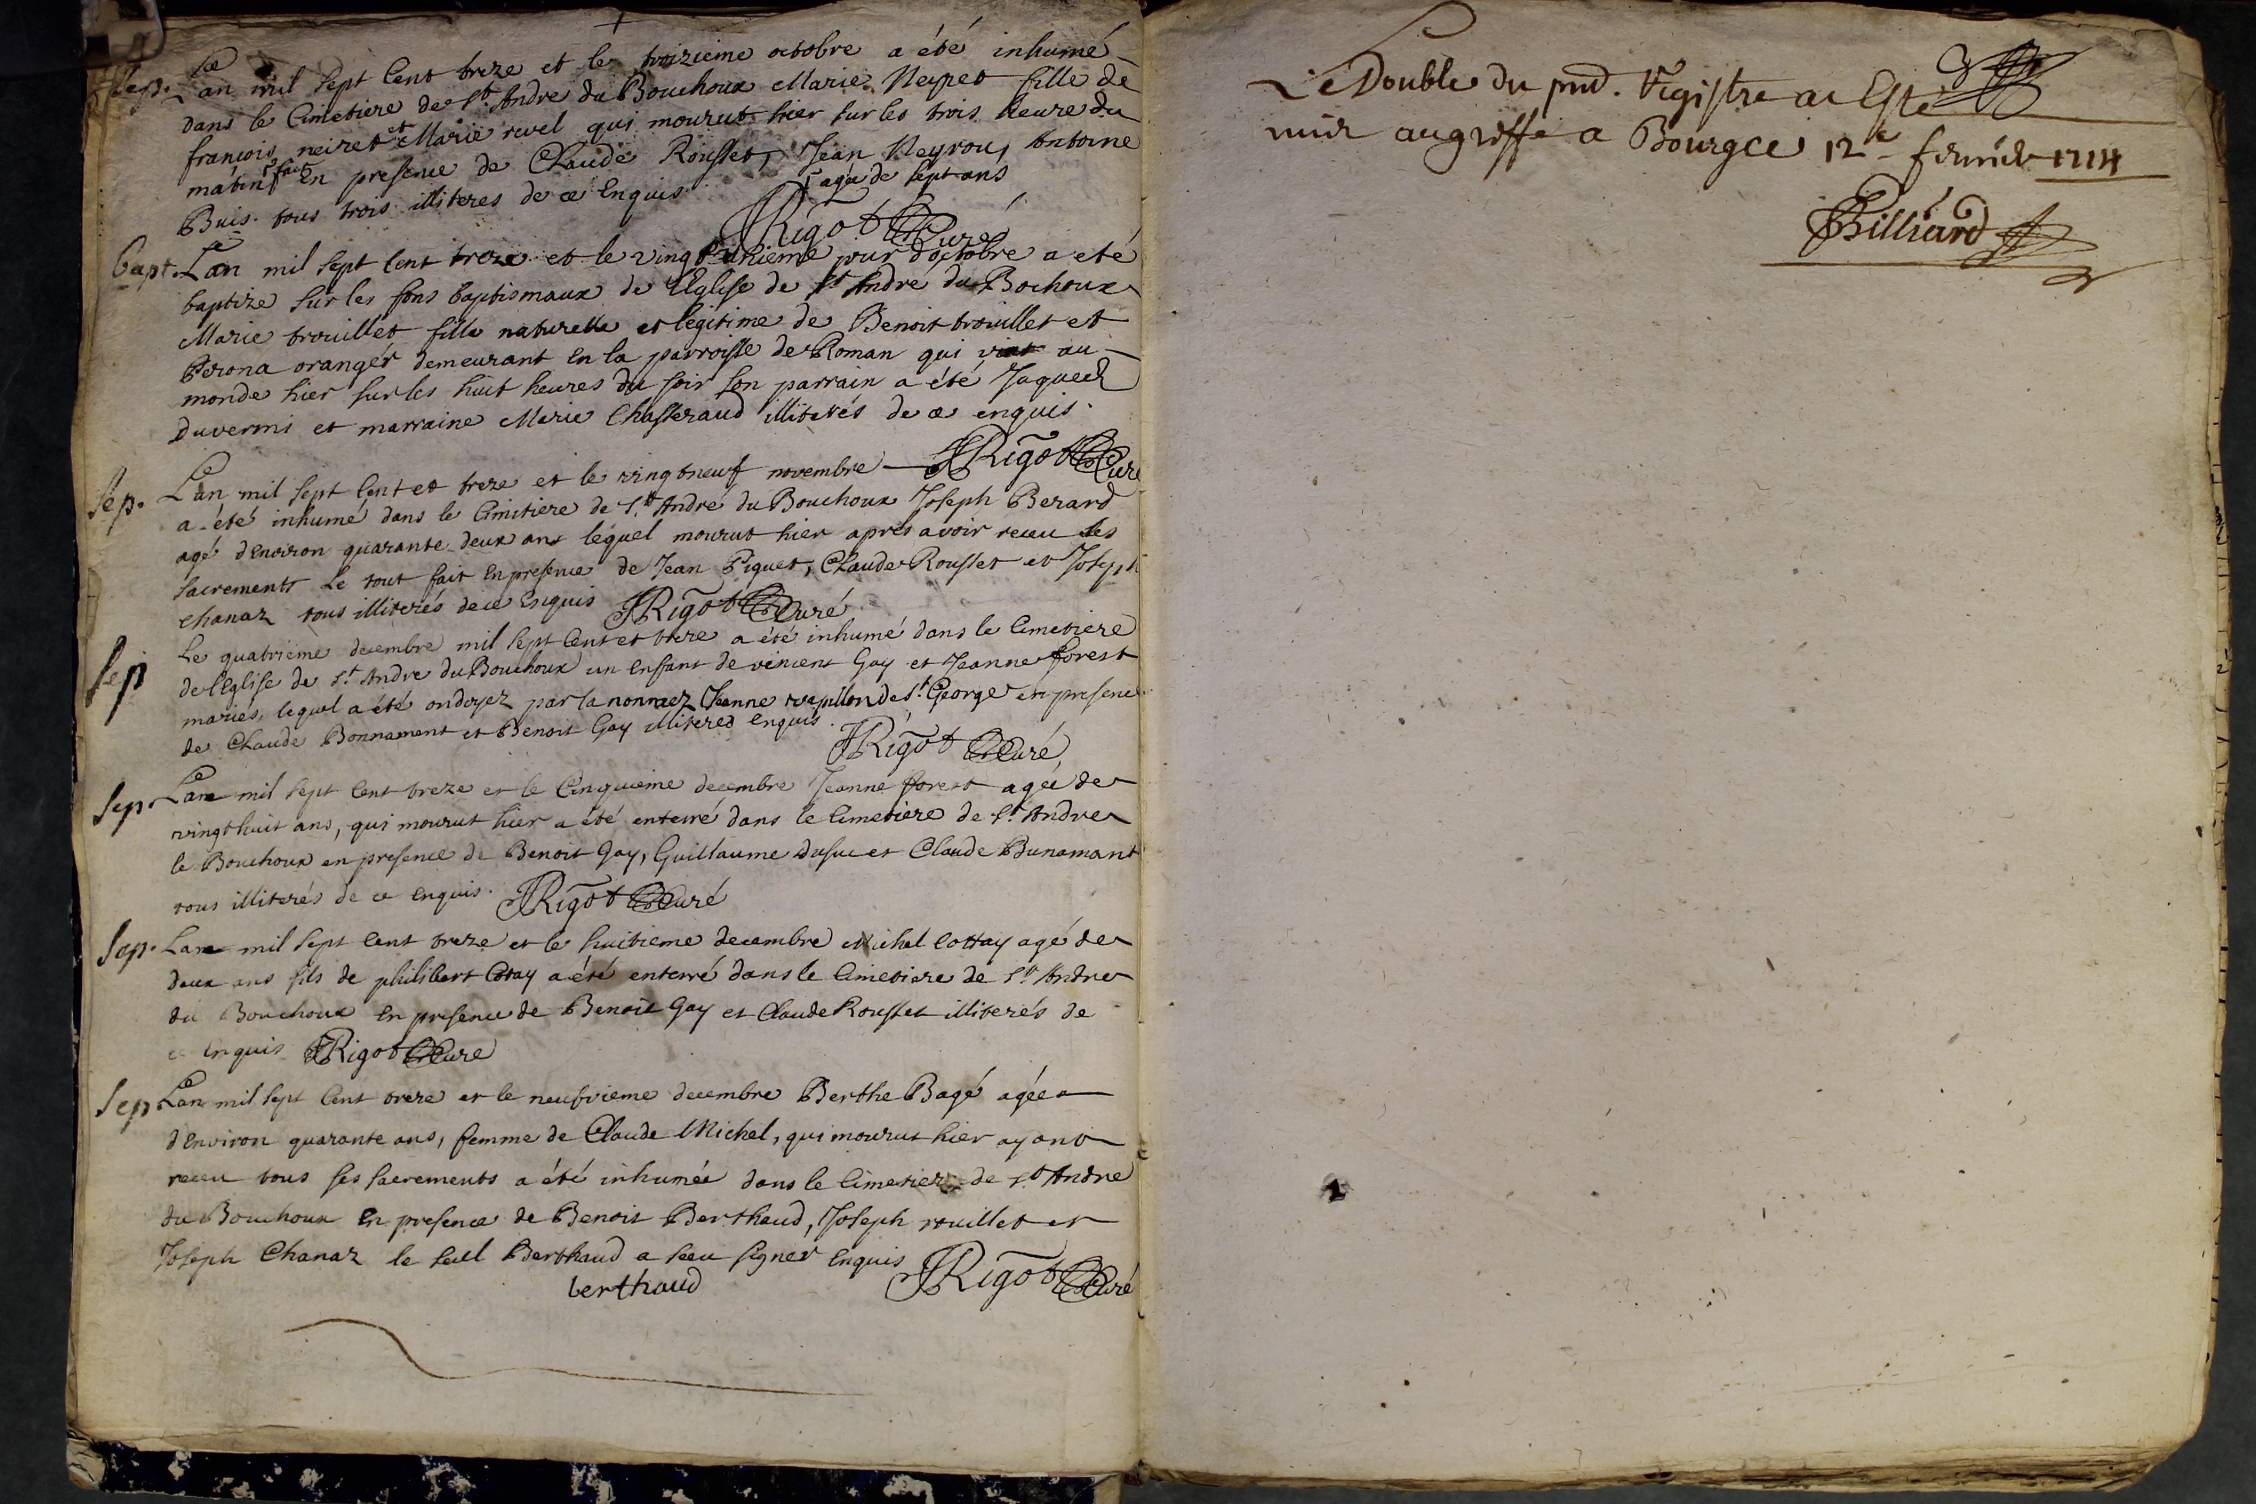 Sep. Lan mil sept Cent treze et le troizieme octobre a été inhumé
dans le Cimetiere de St. André du Bouchoux Marie Neyret fille de
francois neiret et Marie revel qui mourut hier sur les trois heure du
matin fait En presence de Claude Rousset, Jean Neyrou, Antoine
Buis. tous trois illiteres de ce Enquis. agée de sept ans
Rigot Curé
Bapt. Lan mil sept Cent treze et le vingt jour d'octobre a eté
baptize sur les fons baptismaux de l'Eglise de St André du Bochoux
Marie trouillet fille naturelle et legitime de Benoit trouillet et
Perona oranger demeurant En la parroisse de Roman qui vint au
monde hier sur les huit heures du soir son parrain a été Jaques
Duvernis et marraine Marie Chasseraud illiterés de ce enquis.
Rigot Curé
Sep. Lan mil sept Cent et treze et le vingtneuf novembre
a été inhumé dans le Cimitiere de St. André du Bouchoux Joseph Berard
agé d'Environ quarante deux ans lequel mourut hier apres avoir receu les
sacrements Le tout fait En presence de Jean Piquet, Claude Rousset et Joseph
chanaz tous illiterés de ce Enquis Rigot Curé
Sep Le quatrieme decembre mil sept Cent et treze a été inhumé dans le Cimetiere
de l'Eglise de St. Andre du Bouchoux un Enffant de vincent Gay et Jeanne forest
mariés, lequel a été ondoyez par la nonmez Jeanne de St. George en presence
de Claude Bonnament et Benoit Gay illiteres Enquis.
Rigot Curé
Sep. Lan mil sept Cent treze et le Cinquieme decembre Jeanne forest agée de
vingthuit ans, qui mourut hier a été enterré dans le Cimetiere de St. Andre
le Bouchoux en presence de Benoit Gay, Guillaume Dusuc et Claude Bunamant
tous illiterés de ce Enquis. Rigot Curé
Sep. Lan mil sept Cent treze et le huitieme decembre Michel Cottay agé de
deux ans fils de philibert Cotay a été enterré dans le Cimetiere de St Andre
du Bouchoux En presence de Benoit Gay et Claude Rousset illiterés de
ce Enquis Rigot Curé
Sep Lan mil sept Cent treze et le neufvieme decembre Berthe Bagé agée
d'Environ quarante ans, femme de Claude Michel, qui mourut hier ayant
receu tous ses sacrements a été inhumée dans le Cimetiere de St Andre
du Bouchoux En presence de Benoit Berthaud, Joseph rouillet et
Joseph Chanaz le seul Berthaud a sceu signer Enquis
berthaud Rigot Curé
Le Double du pnt. Registre a Esté
mis au greffe a Bourg ce 12e fevrier 1714
Billiard